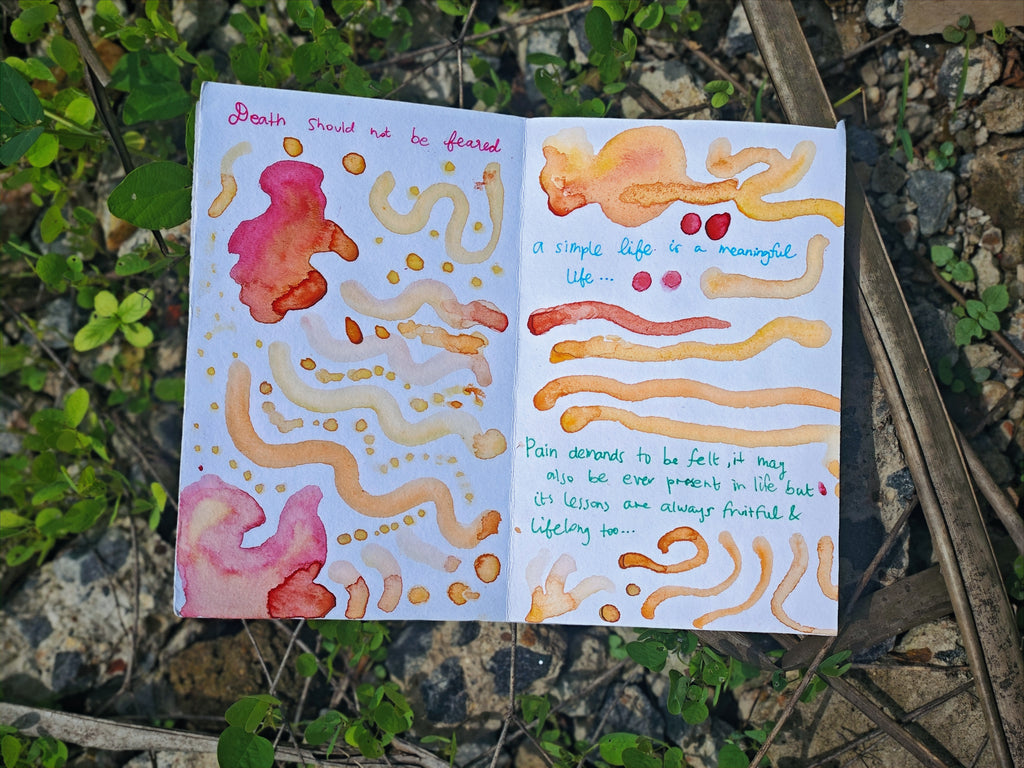 Death should not be feared
a simple life is a meaningful
life...
Pain demands to be felt, it may
also be ever present in life but
its lessons are always fruitful &
lifelong too...